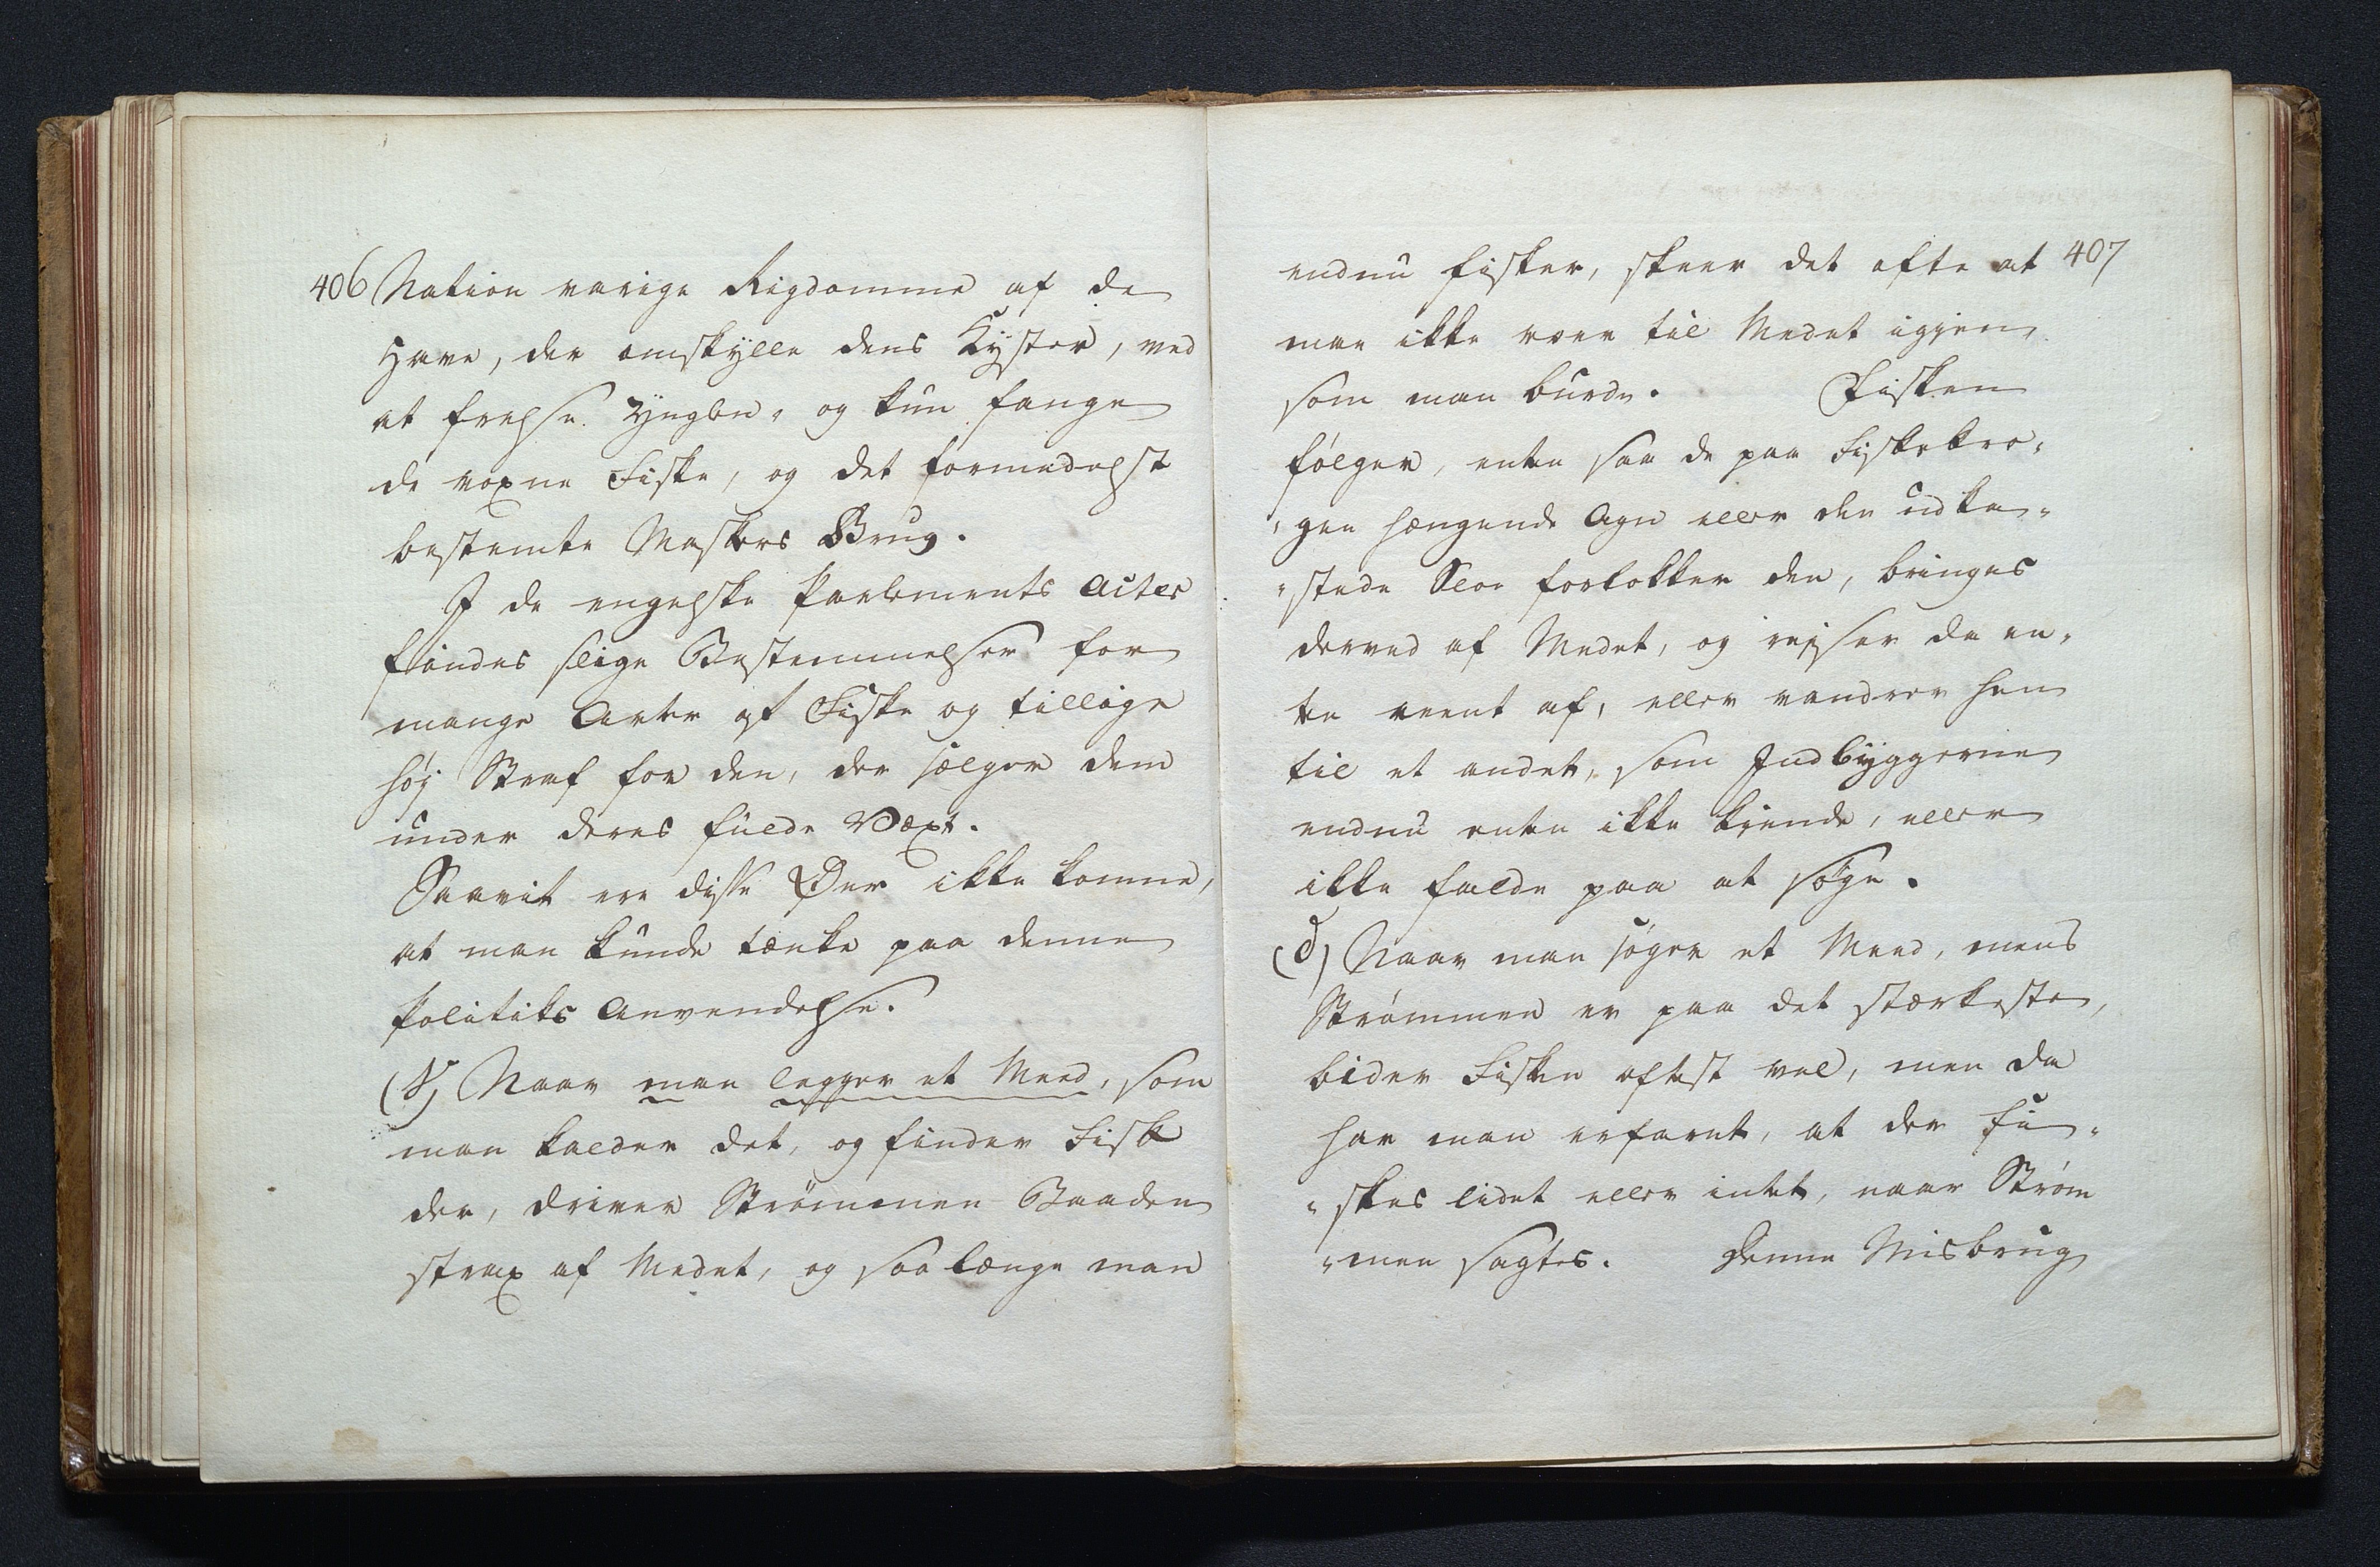 406 Nation varige Rigdomme af de
Have, der omskylle dens Kyster, ved
at frelse Ynglen, og kun fange
de voxne Fiske, og det formedelst
bestemte Maskers Brug.
I de engelske Parlements Acter
findes slige Bestemmelser for
mange Arter af Fiske og tillige
høj Straf for den, der sælger dem
under deres fulde Væxt.
Saavit ere disse Øer ikke komne,
at man kunde tænke paa denne
Politiks Anvendelse.
Naar man legger et Meed, som
man kalder det, og finder Fisk
der, driver Strømmen Baaden
strax af Medet, og saa længe man
endnu fisker, skeer det ofte at 407
man ikke roer til Medet igjen,
som man burde. Fisken
følger, enten saa de paa Fiskekro-
-gen hængende Agn eller den udka-
-stede Sloe forlokker den, bringes
derved af Medet, og rejser da en-
ten reent af, eller vandrer hen
til et andet, som Indbyggerne
endnu enten ikke kjende, eller
ikke falde paa at søge.
(d) Naar man søger et Meed, mens
Strømmen er paa det stærkeste,
bider Fisken oftest vel, men da
har man erfaret, at der fi-
-skes lidet eller intet, naar Strøm
-men sagtes. Denne Misbrug